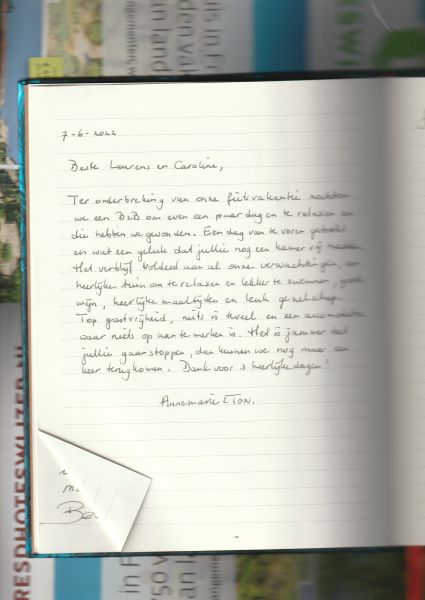 7-6-2022
Beste Laurens en Caroline,
Ter onderbreking van onze fietsvakantie zochten
we een B&B om even een paar dagen te relaxen en
die hebben we gevonden. Een dag van te voren geboekt
en wat een geluk dat jullie nog een kamer vrij hadden.
Het verblijf voldeed aan al onze verwachtingen, een
heerlijke tuin om te relaxen en lekker te zwemmen, goede
wijn, heerlijke maaltijden en leuk gezelschap.
Top gastvrijheid, niets is teveel en een accomodatie
waar niets op aan te merken is. Het is jammer dat
jullie gaan stoppen, dan kunnen we nog maar een
keer terugkomen. Dank voor 3 heerlijke dagen!
Annemarie & Ton.
RESDHOTESWIJZER.NL